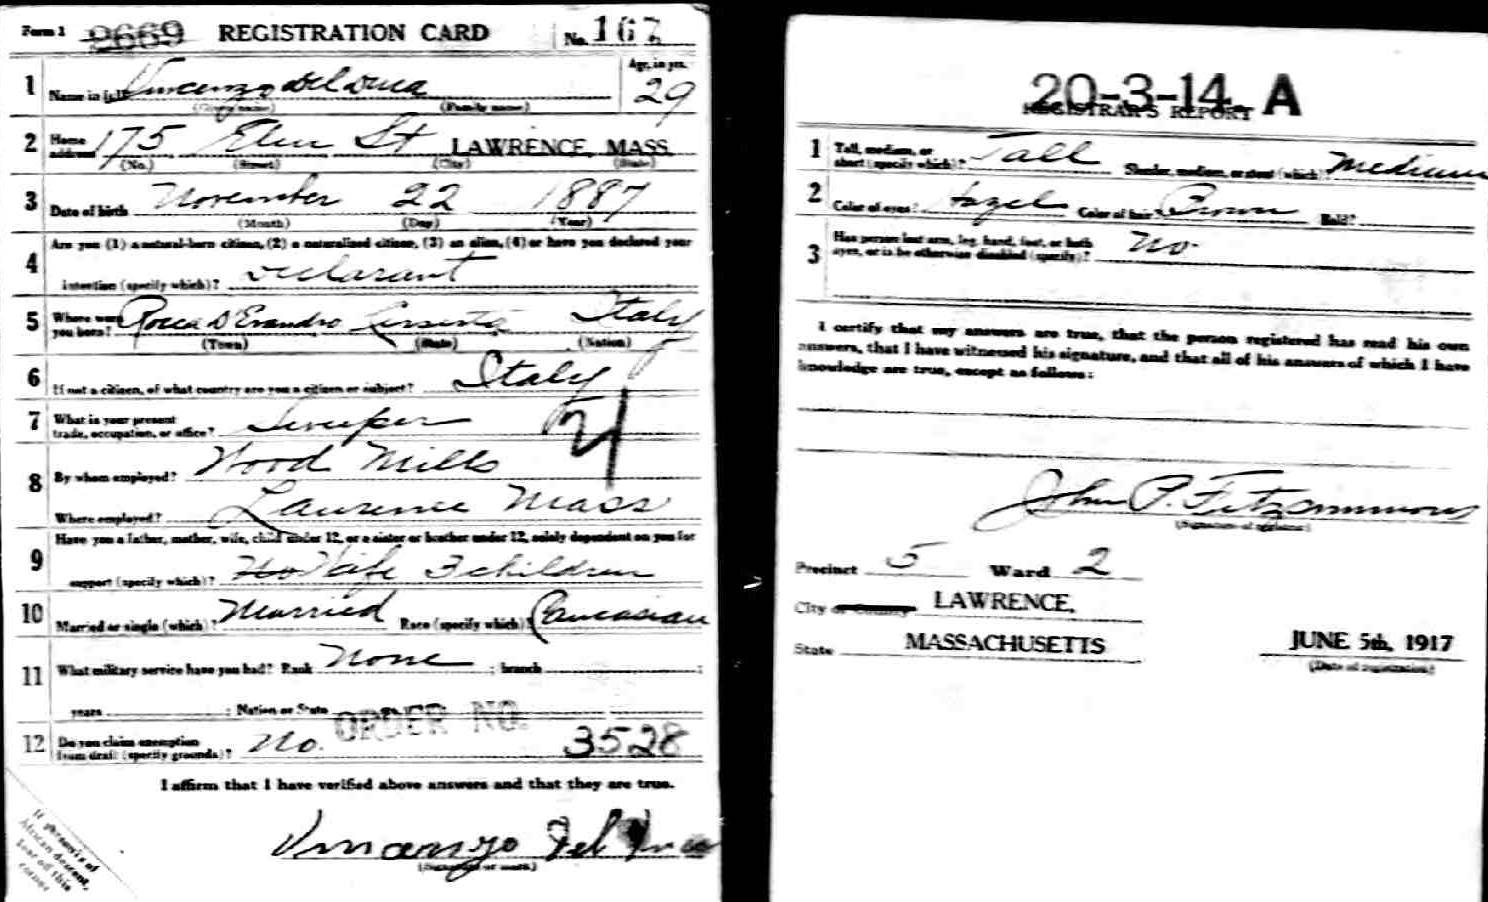 Form 1 2669 REGISTRATION CARD No. 167
1 Name in full Vincenzo Del Duca Age, in yrs. 29
(Given name) (Family name)
2 Home address 175 Elm St LAWRENCE, MASS.
(No.) (Street) (City) (State)
3 Date of birth November 22 1887
(Month) (Day) (Year)
4 Are you (1) a natural-born citizen, (2) a naturalized citizen, (3) an alien, (4) or have you declared your
intention (specify which)? declarant
5 Where were you born? Rocca D'Evandro Italy
(Town) (State) (Nation)
6 If not a citizen, of what country are you a citizen or subject? Italy
7 What is your present trade, occupation, or office? Sweeper 21
8 By whom employed? Wood Mills
Where employed? Lawrence Mass
9 Have you a father, mother, wife, child under 12, or a sister or brother under 12, solely dependent on you for
support (specify which)? No Wife 3 children
10 Married or single (which)? Married Race (specify which)? Caucasian
11 What military service have you had? Rank None ; branch ;
years ; Nation or State
ORDER NO.
12 Do you claim exemption from draft (specify grounds)? No. 3528
I affirm that I have verified above answers and that they are true.
Vincenzo Del Duca
(Signature or mark)
If person is of
African descent,
tear off this
corner
20-3-14. A
REGISTRAR'S REPORT
1 Tall, medium, or short (specify which)? Tall Slender, medium, or stout (which)? Medium
2 Color of eyes? Hazel Color of hair? Brown Bald?
3 Has person lost arm, leg, hand, foot, or both
eyes, or is he otherwise disabled (specify)? No.
I certify that my answers are true, that the person registered has read his own
answers, that I have witnessed his signature, and that all of his answers of which I have
knowledge are true, except as follows:
John P. Fitzsimmons
(Signature of registrar)
Precinct 5 Ward 2
City or County LAWRENCE,
State MASSACHUSETTS JUNE 5th, 1917
(Date of registration)